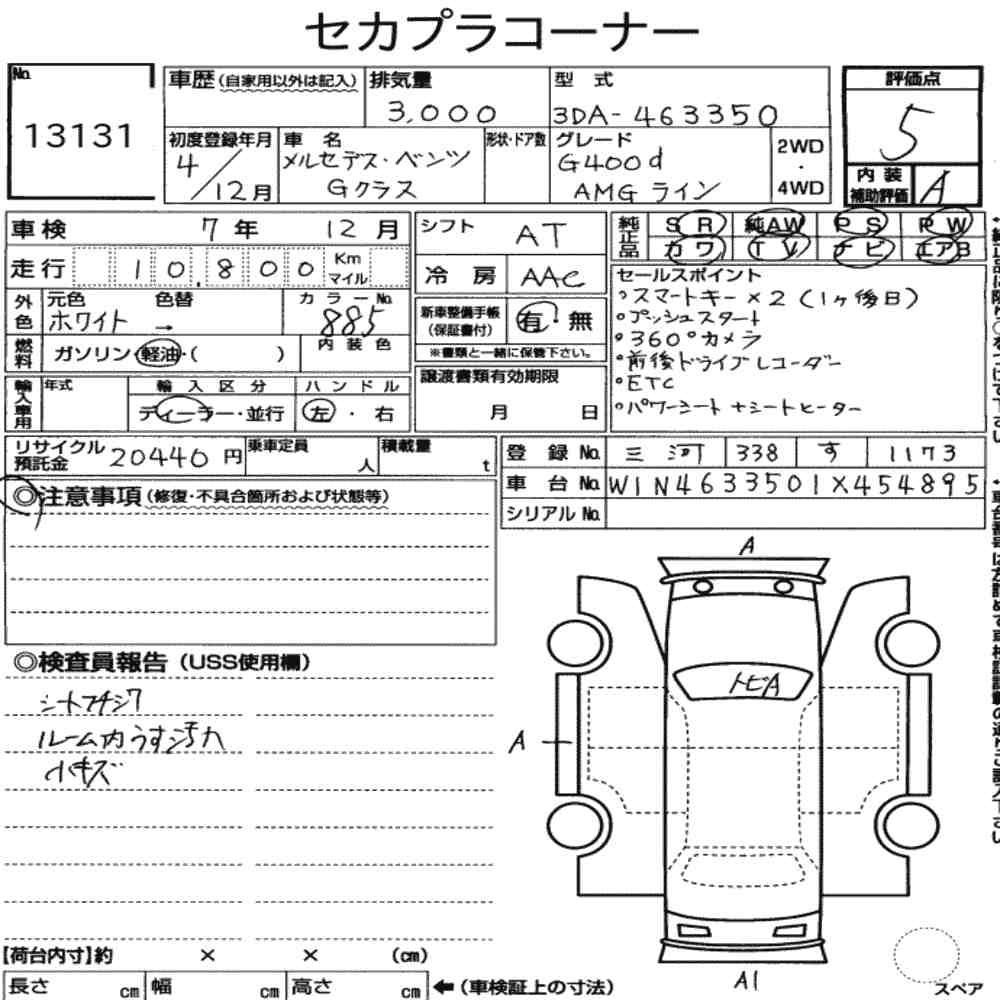 セカプラコーナー
No. 13131
車歴(自家用以外は記入) 排気量 3,000 型式 3DA-463350
評価点 5
初度登録年月 4/12月 車名 メルセデス・ベンツ Gクラス 形状・ドア数 グレード G400d AMGライン 2WD・4WD
内装補助評価 A
車検 7年 12月
シフト AT
純正品 SR 純AW PS PW
カワ TV ナビ エアB
走行 10,800 Km マイル
冷房 AAC
セールスポイント
・スマートキー×2(1ヶ後日)
・プッシュスタート
・360°カメラ
・前後ドライブレコーダー
・ETC
・パワーシート+シートヒーター
外色 元色 ホワイト 色替 → カラーNo. 885
内装色
新車整備手帳(保証書付) 有・無
※書類と一緒に保管下さい。
燃料 ガソリン・軽油・( )
譲渡書類有効期限
月 日
輸入車用 年式 輸入区分 ハンドル
ディーラー・並行 左・右
リサイクル預託金 20440円 乗車定員 人 積載量 t
登録No. 三河 338 す 1173
車台No. W1N4633501X454895
シリアルNo.
◎注意事項(修復・不具合箇所および状態等)
◎検査員報告(USS使用欄)
シートフチシワ
ルーム内うす汚れ
小キズ
A
トビA
A
A1
スペア
【荷台内寸】約 × × (cm)
長さ cm 幅 cm 高さ cm ←(車検証上の寸法)